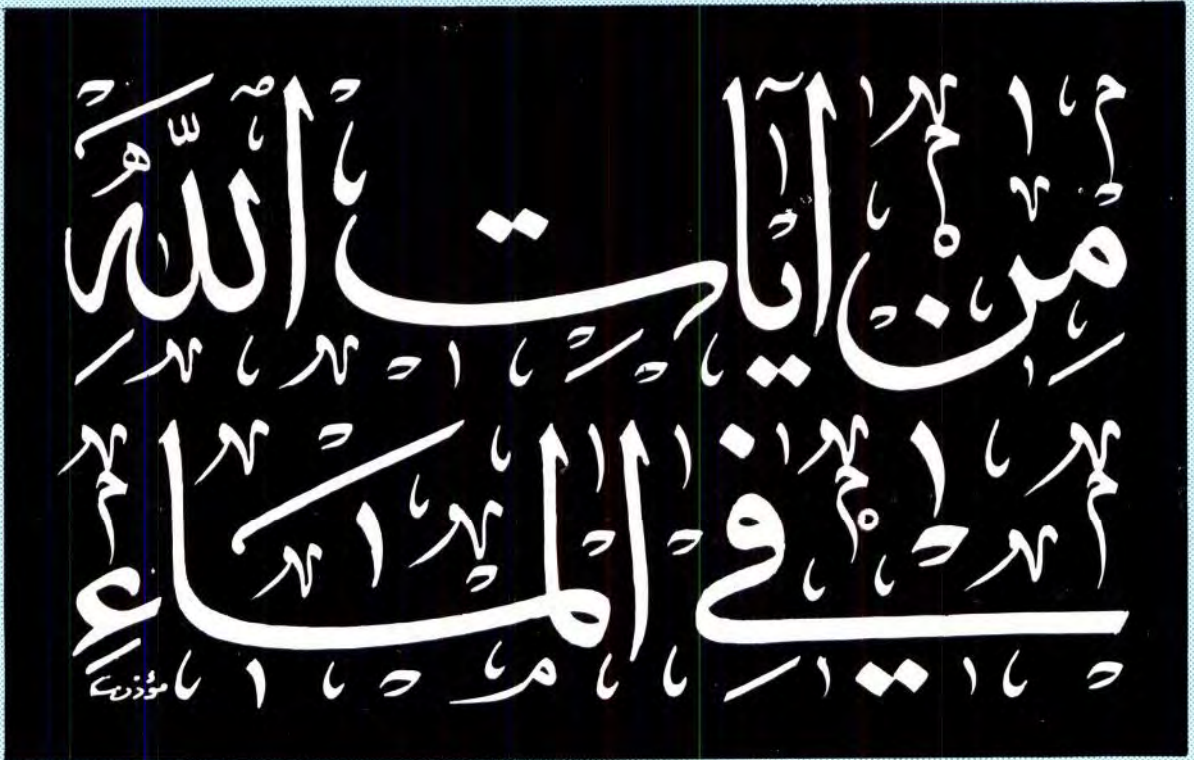 مِنْ آيَاتِ اللَّهِ
فِي الْمَاءِ